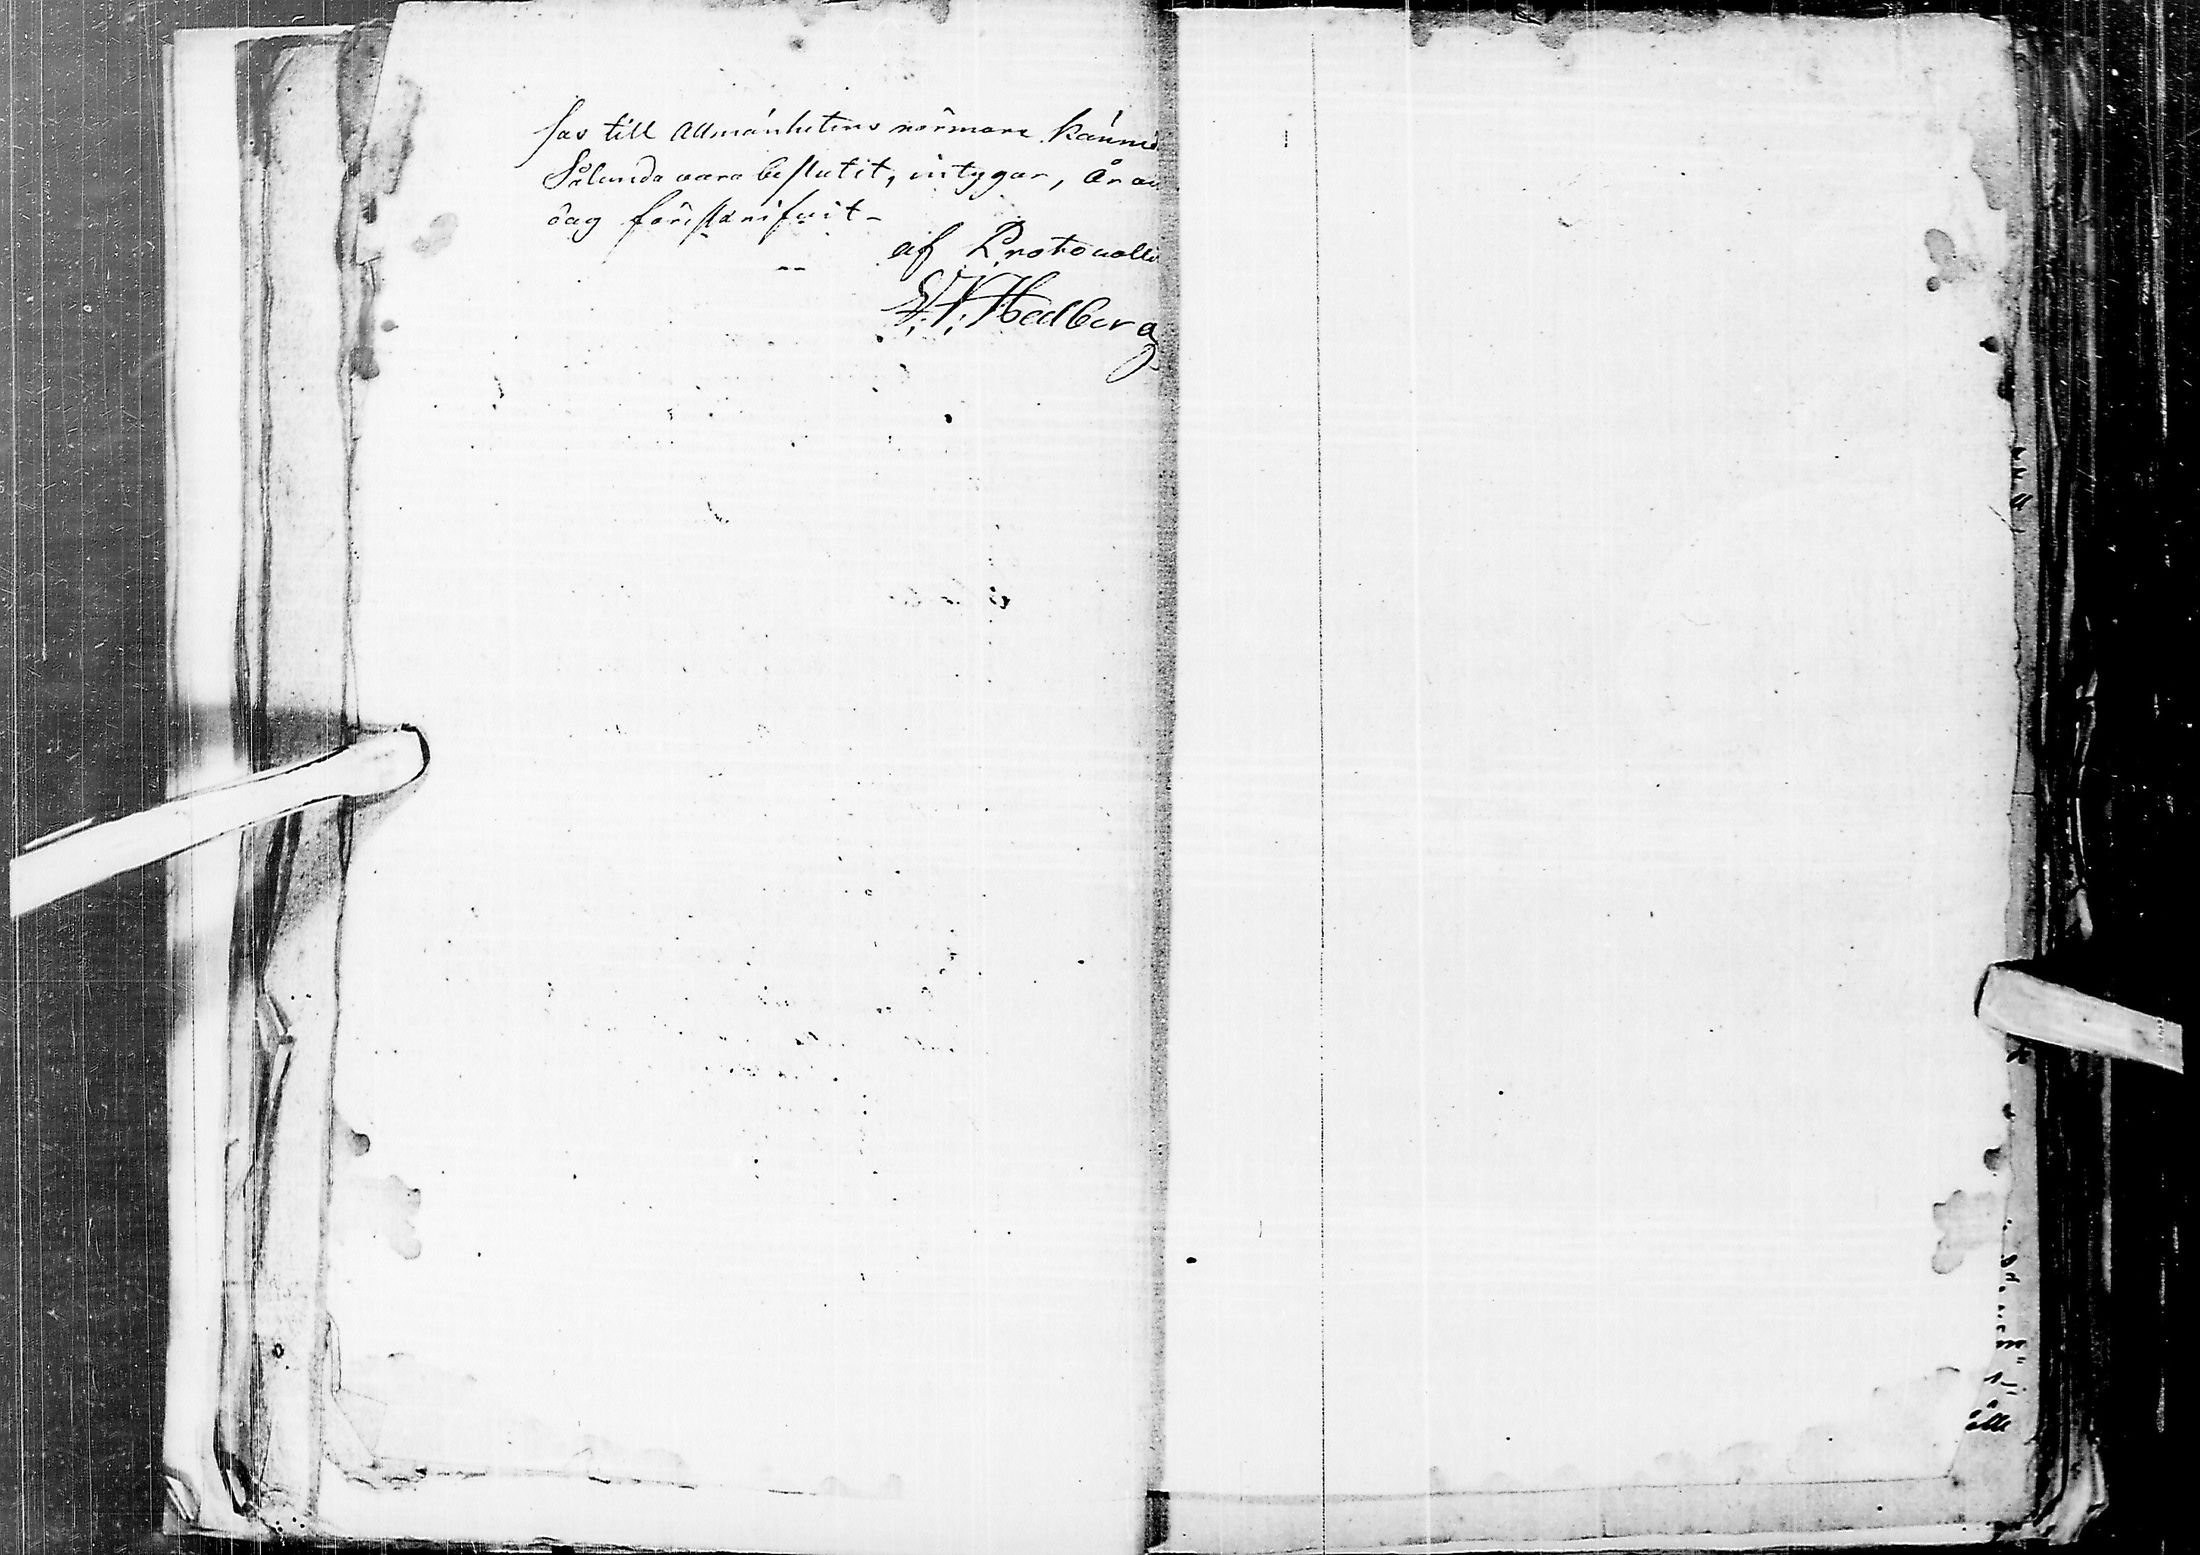 sas till Allmänhetens närmare känned
Sålunda vara beslutit, intygar, År oc
dag föreskrifvit -
af Protocolle
Hedberg